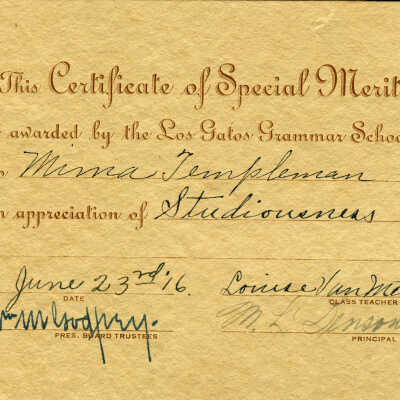 This Certificate of Special Merit
awarded by the Los Gatos Grammar Schoo
Mirna Templeman
n appreciation of Studiousness
June 23rd '16. Louise Van Me
DATE CLASS TEACHER
Wm M Godfrey. M. L.
PRES. BOARD TRUSTEES PRINCIPAL